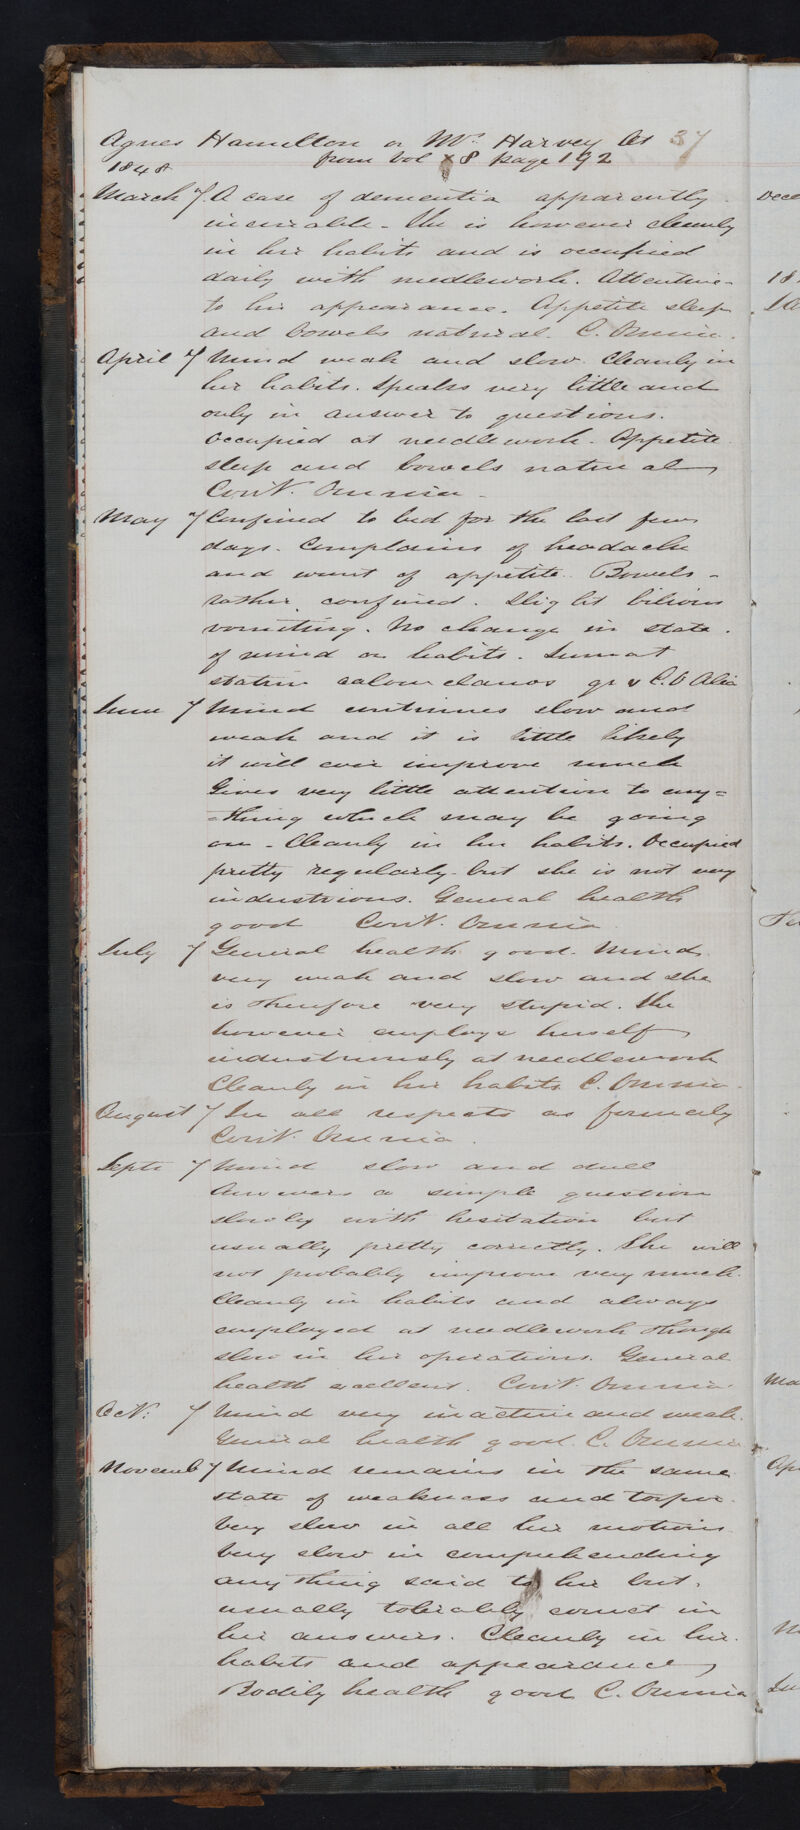 Agnes Hamilton or Mrs. Harvey Aet 37
from Vol 8 page 192
1848
March 7 A case of dementia apparently
incurable - She is however cleanly
in her habits and is occupied
daily with needlework. Attentive
to her appearance. Appetite sleep
and bowels natural. C. Omnia.
April 7 Mind weak and slow. Cleanly in
her habits. Speaks very little and
only in answer to questions.
Occupied at needlework. Appetite
sleep and bowels natural
Cont. Omnia -
May 7 Confined to bed for the last few
days. Complains of headache
and want of appetite. Bowels -
rather confined. Slight bilious
vomiting. No change in state
of mind or habits. Sumat
statim calomelanos gr v C. O Alia
June 7 Mind continues slow and
weak and it is little likely
it will ever improve much
Gives very little attention to any=
=thing which may be going
on - Cleanly in her habits. Occupied
pretty regularly but she is not very
industrious. General health
good Cont. Omnia
July 7 General health good. Mind
very weak and slow and she
is therefore very stupid. She
however employs herself
industriously at needlework
Cleanly in her habits C. Omnia
August 7 In all respects as formerly
Cont. Omnia.
Septr 7 Mind slow and dull
Answers a simple question
slowly with hesitation but
usually pretty correctly. She will
not probably improve very much.
Cleanly in habits and always
employed at needlework though
slow in her operations. General
health excellent. Cont. Omnia
Oct. 7 Mind very inactive and weak.
General health good. C. Omnia
Novemb 7 Mind remains in the same
state of weakness and torpor.
Very slow in all her motions
Very slow in comprehending
anything said to her but
usually tolerably correct in
her answers. Cleanly in her
habits and appearance
Bodily health good C. Omnia